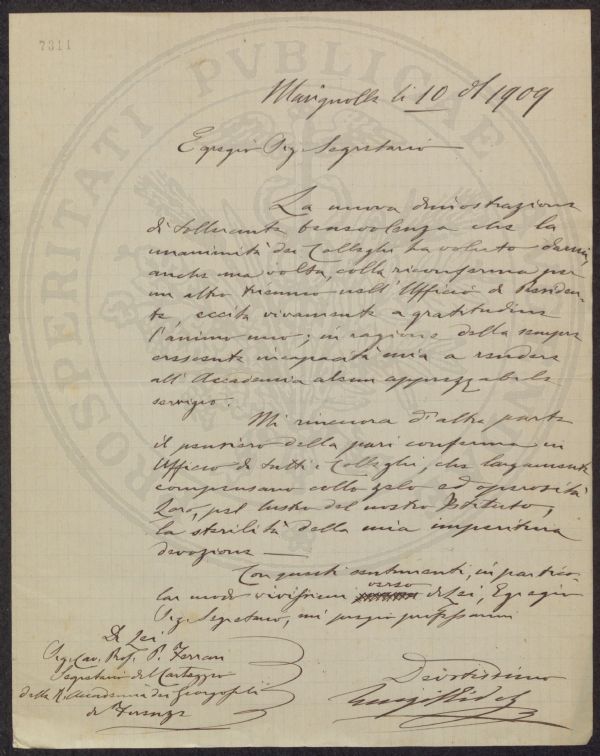 7311
PROSPERITATI PVBLICAE
Marignolle li 10 1909
Egregio Sig. Segretario
La nuova dimostrazione
di tollerante benevolenza che la
unanimità dei Colleghi ha voluto darmi
anche una volta, colla riconferma per
un altro triennio nell'Ufficio di Presiden-
te, eccita vivamente a gratitudine
l'animo mio; in ragione della sempre
crescente incapacità mia a rendere
all'Accademia alcun apprezzabile
servigio.
Mi rincuora d'altra parte
il pensiero della pari conferma in
Ufficio di tutti i Colleghi, che largamente
compensano collo zelo ed operosità
Loro, pel lustro del nostro Istituto,
la sterilità della mia imperitura
devozione —
Con questi sentimenti, in partico-
lar modo verso di Lei, Egregio
Sig. Segretario, mi pregio professarmi
Di Lei
Sig. Cav. Prof. P. Ferrari
Segretario del Carteggio
della R. Accademia dei Georgofili
di Firenze
Devotissimo